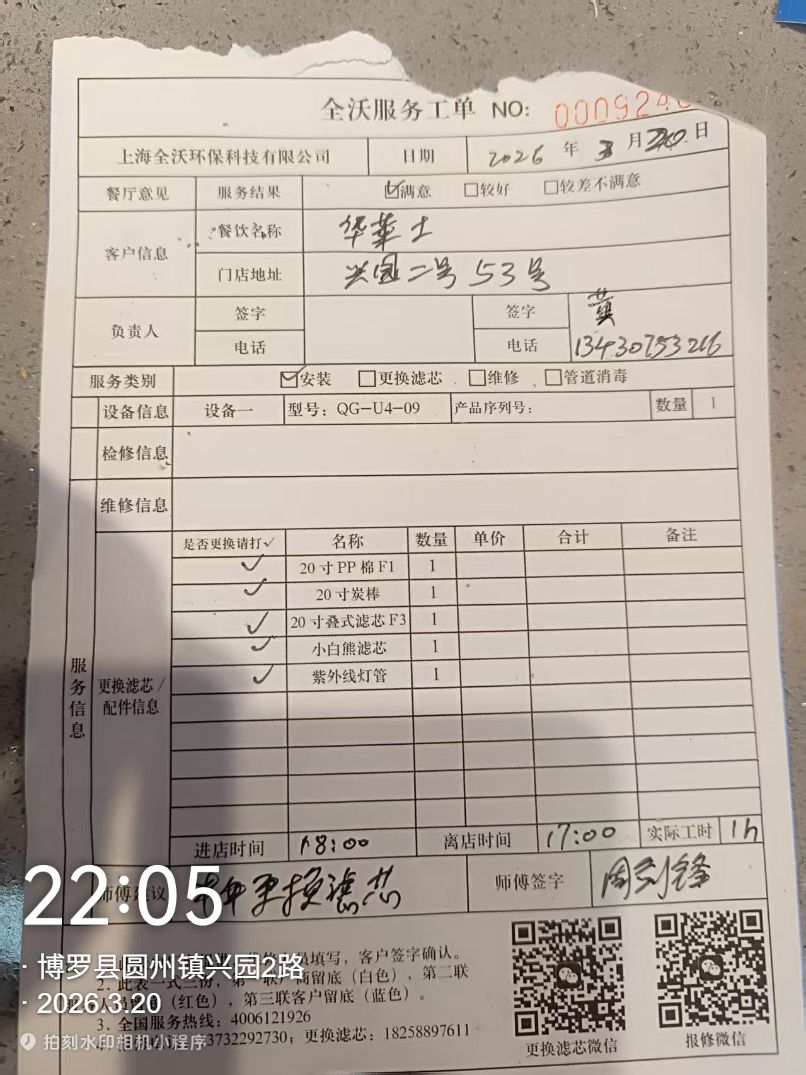 全沃服务工单 NO: 000924
上海全沃环保科技有限公司 日期 2026 年 3 月 20 日
餐厅意见 服务结果 ☑满意 □较好 □较差不满意
客户信息 餐饮名称 华莱士
门店地址 兴园二号53号
负责人 签字 签字 黄
电话 电话 13430753216
服务类别 ☑安装 □更换滤芯 □维修 □管道消毒
设备信息 设备一 型号：QG-U4-09 产品序列号： 数量 1
检修信息
维修信息
服务信息
更换滤芯/配件信息
是否更换请打✓ 名称 数量 单价 合计 备注
✓ 20寸PP棉F1 1
✓ 20寸炭棒 1
✓ 20寸叠式滤芯F3 1
✓ 小白熊滤芯 1
✓ 紫外线灯管 1
进店时间 18:00 离店时间 17:00 实际工时 1h
师傅建议 更换滤芯 师傅签字 周剑锋
填写，客户签字确认。
2. 此表一式三份，第一联 留底（白色），第二联
（红色），第三联客户留底（蓝色）。
3. 全国服务热线：4006121926
3732292730；更换滤芯：18258897611
更换滤芯微信 报修微信
22:05
· 博罗县圆州镇兴园2路
· 2026.3.20
拍刻水印相机小程序